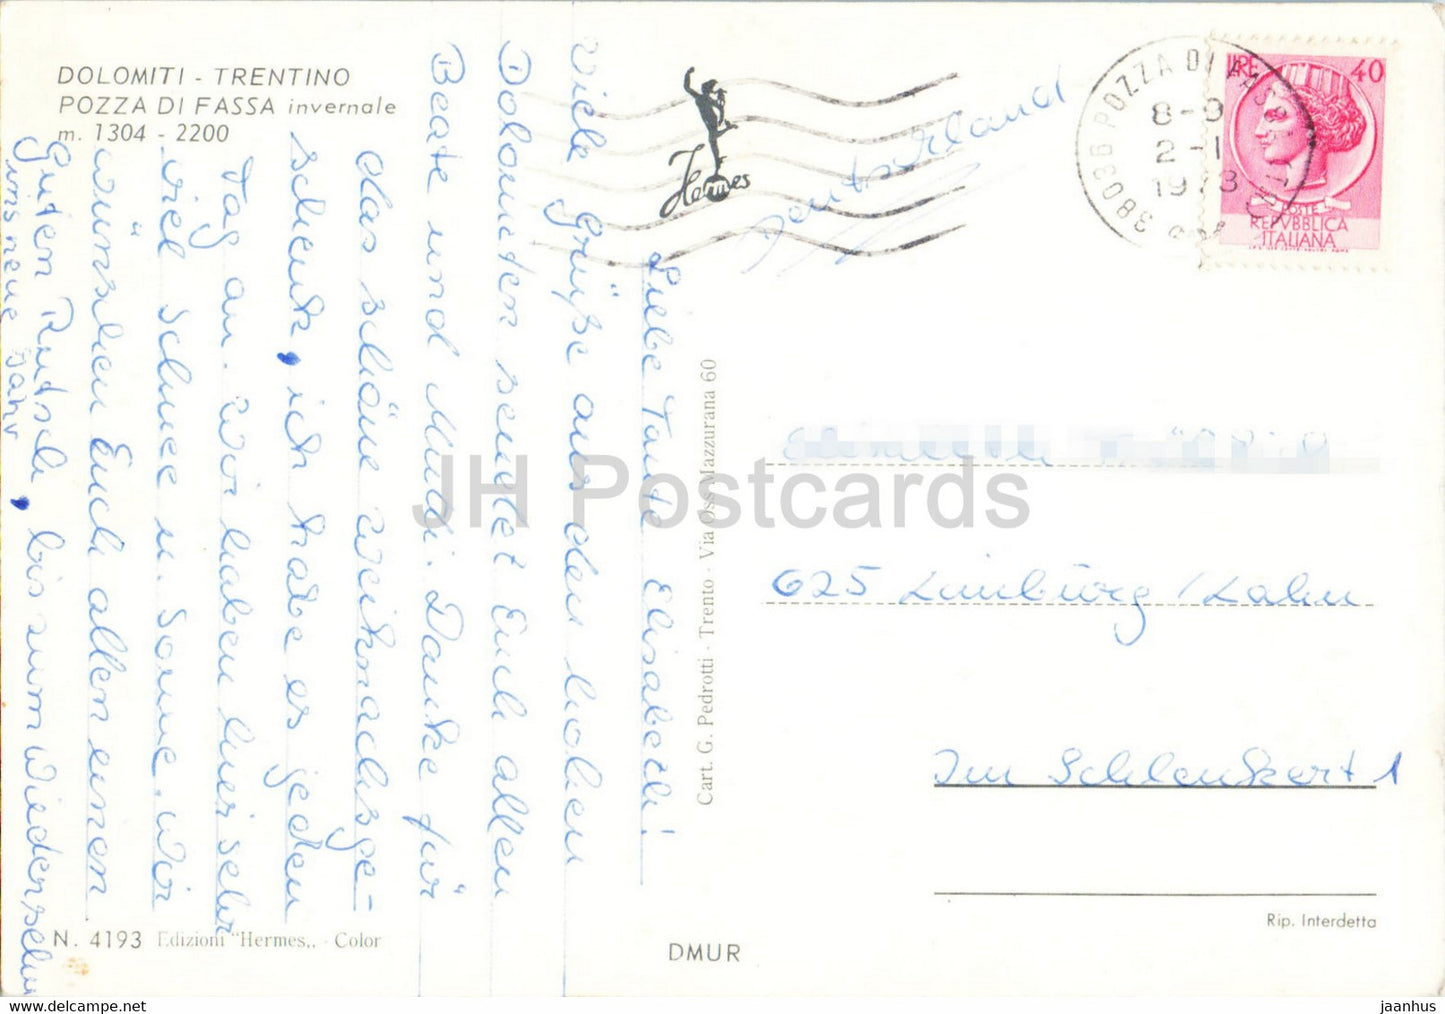 DOLOMITI - TRENTINO
POZZA DI FASSA invernale
m. 1304 - 2200
Hermes
Deutschland
38036 POZZA DI
8-9
2-1
1973
LIRE 40
POSTE
REPVBBLICA
ITALIANA
Liebe Tante Elisabeth!
Viele Grüße aus den hohen
Dolomiten sendet Euch allen
Beate und Mudi. Danke für
das schöne Weihnachtsge-
schenk, ich habe es jeden
Tag an. Wir haben hier sehr
viel Schnee u. Sonne. Wir
wünschen Euch allen einen
Guten Rutsch, bis zum Wiedersehen
ins neue Jahr
Cart. G. Pedrotti - Trento - Via Oss Mazzurana 60
JH Postcards
625 Limburg/Lahn
Im Schlenkert 1
Rip. Interdetta
N. 4193 Edizioni "Hermes,, - Color
DMUR
jaanhus